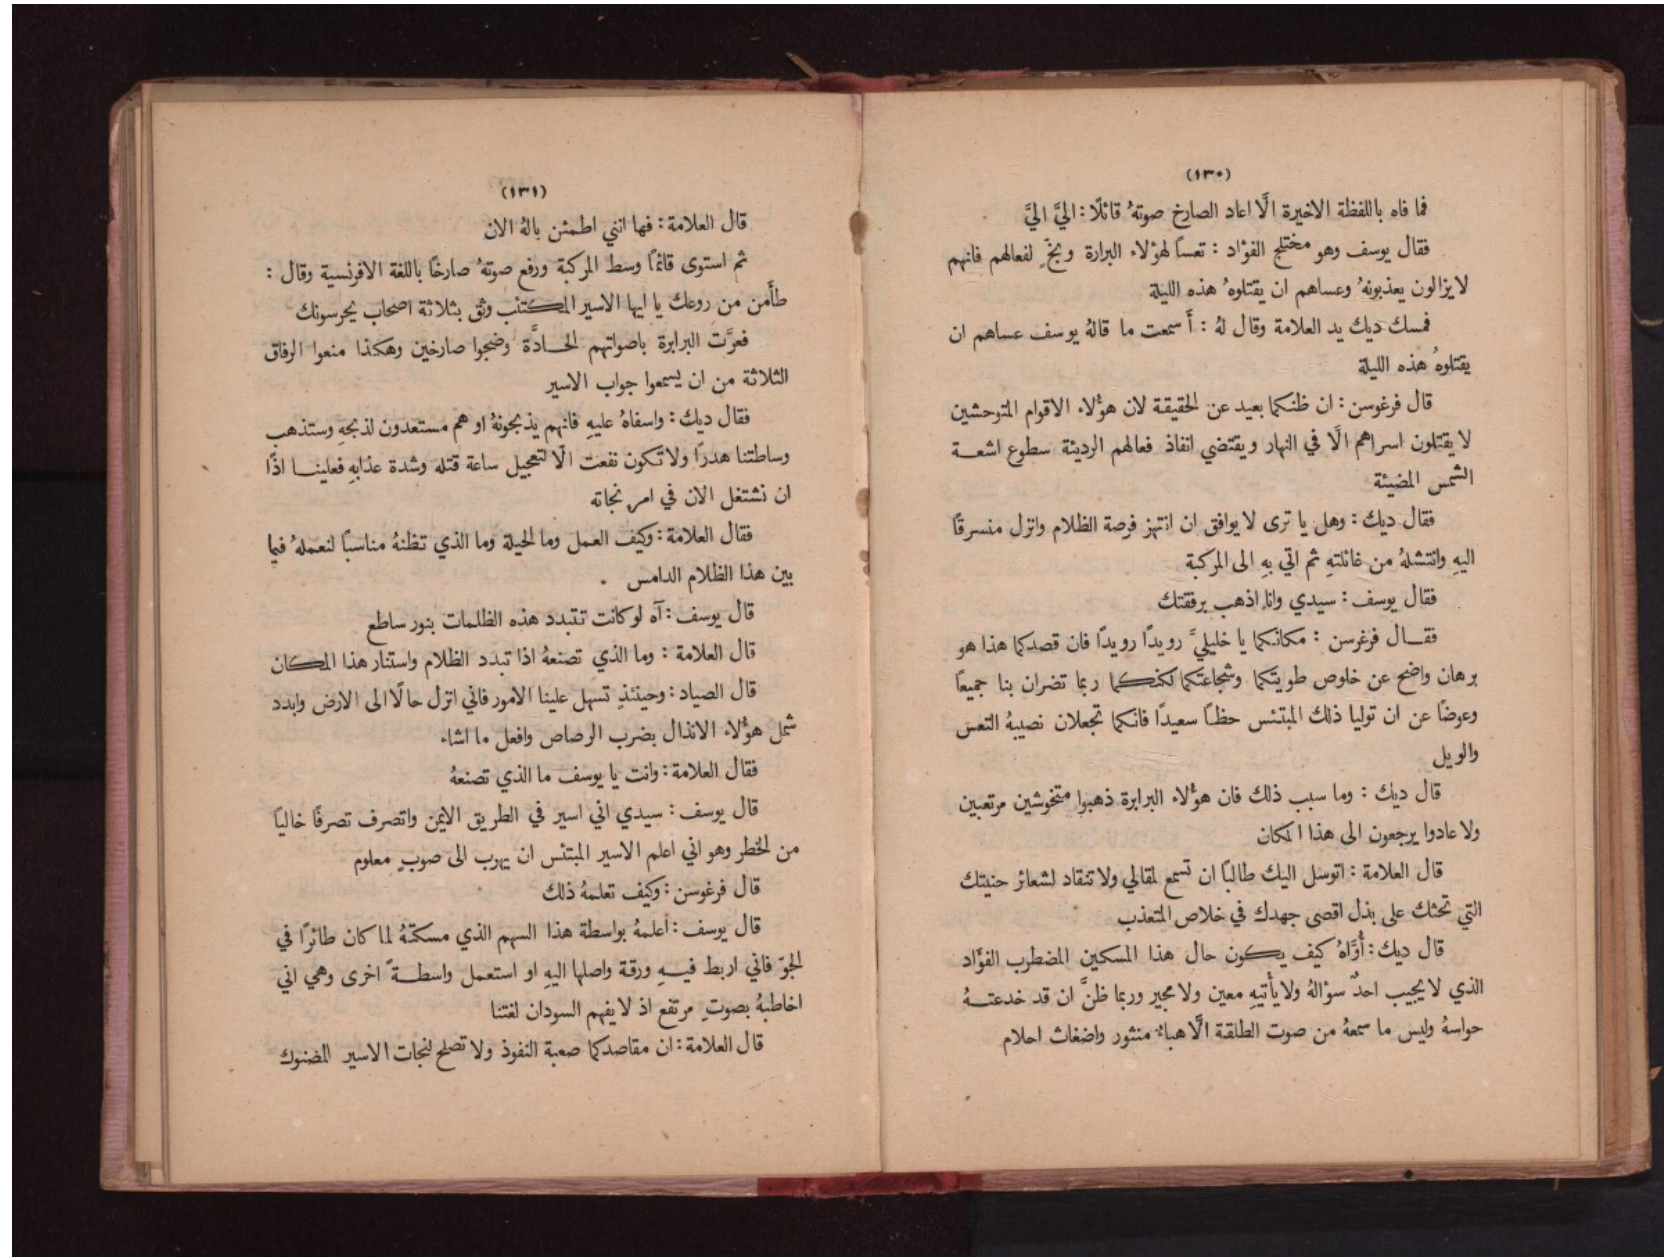 (١٣٠)
فما فاه باللفظة الاخيرة الَّا اعاد الصارخ صوتهُ قائلًا: اليَّ اليَّ
فقال يوسف وهو مختلج الفؤاد : تعسًا لهؤلاء البرارة وبخٍّ لفعالهم فانهم
لا يزالون يعذبونهُ وعساهم ان يقتلوهُ هذه الليلة
فمسك ديك يد العلامة وقال لهُ : أَسمعت ما قالهُ يوسف عساهم ان
يقتلوهُ هذه الليلة
قال فرغوسن : ان ظنكما بعيد عن الحقيقة لان هؤلاء الاقوام المتوحشين
لا يقتلون اسراهم الَّا في النهار ويقتضي انفاذ فعالهم الرديئة سطوع اشعـــة
الشمس المضيئة
فقال ديك : وهل يا ترى لا يوافق ان انتهز فرصة الظلام وانزل منسرقًا
اليهِ وانتشلهُ من غائلتهِ ثم اتي بهِ الى المركبة
فقال يوسف : سيدي وانا اذهب برفقتك
فقـــال فرغوسن : مكانكما يا خليليَّ رويدًا رويدًا فان قصدكما هذا هو
برهان واضح عن خلوص طويتكما وشجاعتكما لكنكما ربما تضران بنا جميعًا
وعوضًا عن ان توليا ذلك المبتئس حظًا سعيدًا فانكما تجعلان نصيبهُ التعس
والويل
قال ديك : وما سبب ذلك فان هؤلاء البرابرة ذهبوا متخوشين مرتعبين
ولا عادوا يرجعون الى هذا المكان
قال العلامة : اتوسل اليك طالبًا ان تسمع لمقالي ولا تنقاد لشعائر حنيتك
التي تحثك على بذل اقصى جهدك في خلاص المتعذب
قال ديك : أُوَّاهُ كيف يكون حال هذا المسكين المضطرب الفؤَاد
الذي لا يجيب احدٌ سؤالهُ ولا يأتيهِ معين ولا مجير وربما ظنَّ ان قد خدعتـــهُ
حواسهُ وليس ما سمعهُ من صوت الطلقة الَّا هباءٌ منثور واضغاث احلام
(١٣١)
قال العلامة : فها انني اطمئن بالهُ الان
ثم استوى قائمًا وسط المركبة ورفع صوتهُ صارخًا باللغة الافرنسية وقال :
طأَمن من روعك يا ايها الاسير المكتئب وثق بثلاثة اصحاب يحرسونك
فعرَّت البرابرة باصواتهم الحـــادَّة وضجوا صارخين وهكذا منعوا الرفاق
الثلاثة من ان يسمعوا جواب الاسير
فقال ديك : واسفاهُ عليهِ فانهم يذبحونهُ او هم مستعدون لذبحهِ وستذهب
وساطتنا هدرًا ولا تكون نفعت الَّا لتعجيل ساعة قتله وشدة عذابهِ فعلينـــا اذًا
ان نشتغل الان في امر نجاته
فقال العلامة : وكيف العمل وما الحيلة وما الذي تظنهُ مناسبًا لنعملهُ فيما
بين هذا الظلام الدامس
قال يوسف : آه لو كانت تتبدد هذه الظلمات بنور ساطع
قال العلامة : وما الذي تصنعهُ اذا تبدد الظلام واستنار هذا المكان
قال الصياد : وحينئذٍ تسهل علينا الامور فاني انزل حالًا الى الارض وابدد
شمل هؤلاء الانذال بضرب الرصاص وافعل ما اشاء
فقال العلامة : وانت يا يوسف ما الذي تصنعهُ
قال يوسف : سيدي اني اسير في الطريق الايمن واتصرف تصرفًا خاليًا
من الخطر وهو اني اعلم الاسير المبتئس ان يهرب الى صوبٍ معلوم
قال فرغوسن : وكيف تعلمهُ ذلك
قال يوسف : أعلمهُ بواسطة هذا السهم الذي مسكتهُ لما كان طائرًا في
الجوّ فاني اربط فيـــهِ ورقة واصلها اليهِ او استعمل واسطـــةً اخرى وهي اني
اخاطبهُ بصوتٍ مرتفع اذ لا يفهم السودان لغتنا
قال العلامة : ان مقاصدكما صعبة النفوذ ولا تصلح لنجات الاسير المضنوك